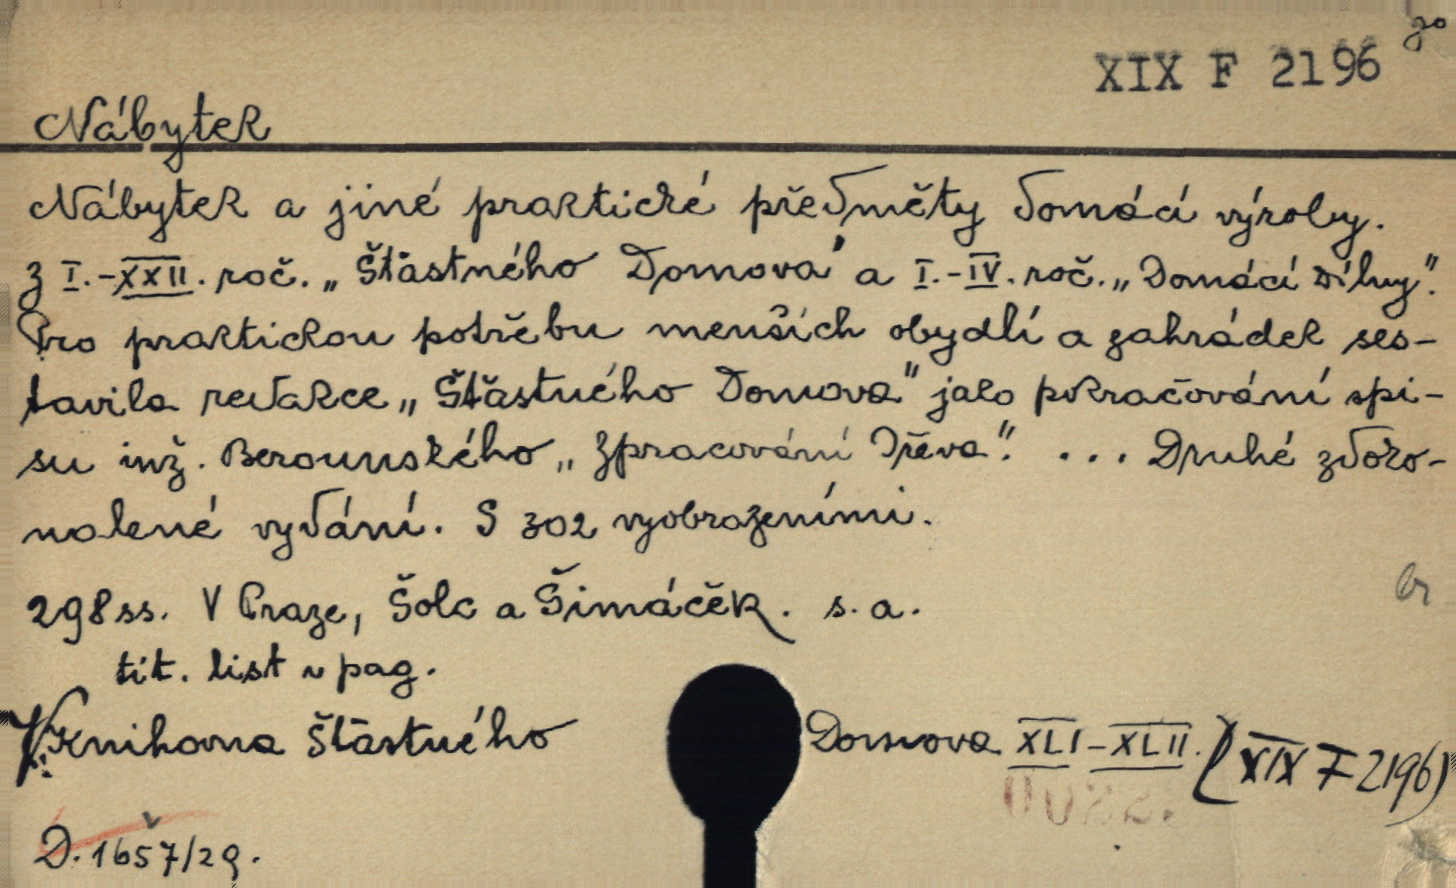 XIX F 2196
Nábytek
Nábytek a jiné praktické předměty domácí výroby.
z I.-XXII. roč. „Šťastného Domova" a I.-IV. roč. „Domácí dílny".
Pro praktickou potřebu menších obydlí a zahrádek ses-
tavila redakce „Šťastného Domova" jako pokračování spi-
su inž. Berounského „Zpracování dřeva". ... Druhé zdoko-
nalené vydání. S 302 vyobrazeními.
298 ss. V Praze, Šolc a Šimáček. s. a.
tit. list v pag.
V: Knihovna Šťastného Domova XLI-XLII. (XIX F 2196)
D. 1657/29.
br